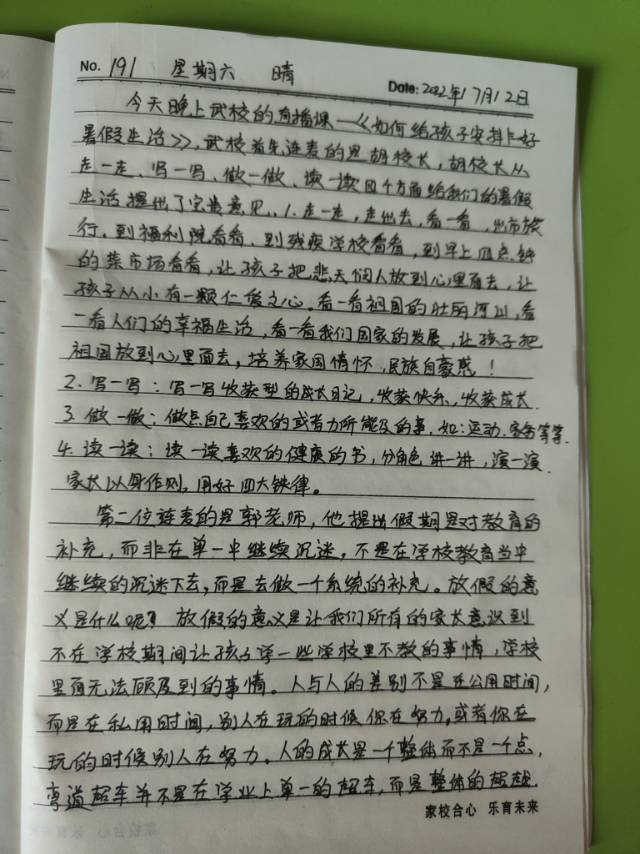 No. 191 星期六 晴 Date: 2022年7月12日
今天晚上武校的直播课—《如何给孩子安排好
暑假生活》,武校首先连麦的是胡校长,胡校长从
走一走、写一写、做一做、读一读四个方面给我们的暑假
生活提出了宝贵意见。1.走一走,走出去,看一看,出市旅
行,到福利院看看,到残疾学校看看,到早上四点钟
的菜市场看看,让孩子把悲天悯人放到心里面去,让
孩子从小有一颗仁爱之心。看一看祖国的壮丽河川,看
一看人们的幸福生活,看一看我们国家的发展,让孩子把
祖国放到心里面去,培养家国情怀、民族自豪感!
2.写一写:写一写收获型的成长日记,收获快乐,收获成长.
3.做一做:做点自己喜欢的或者力所能及的事,如:运动.家务等等.
4.读一读:读一读喜欢的健康的书,分角色讲一讲,演一演.
家长以身作则,用好四大铁律。
第二位连麦的是郭老师,他提出假期是对教育的
补充,而非在单一中继续沉迷,不是在学校教育当中
继续的沉迷下去,而是去做一个系统的补充。放假的意
义是什么呢?放假的意义是让我们所有的家长意识到
不在学校期间让孩子学一些学校里不教的事情,学校
里面无法顾及到的事情。人与人的差别不是在公用时间,
而是在私用时间,别人在玩的时候你在努力,或者你在
玩的时候别人在努力。人的成长是一个整体而不是一个点,
弯道超车并不是在学业上单一的超车,而是整体的超越.
家校合心 乐育未来